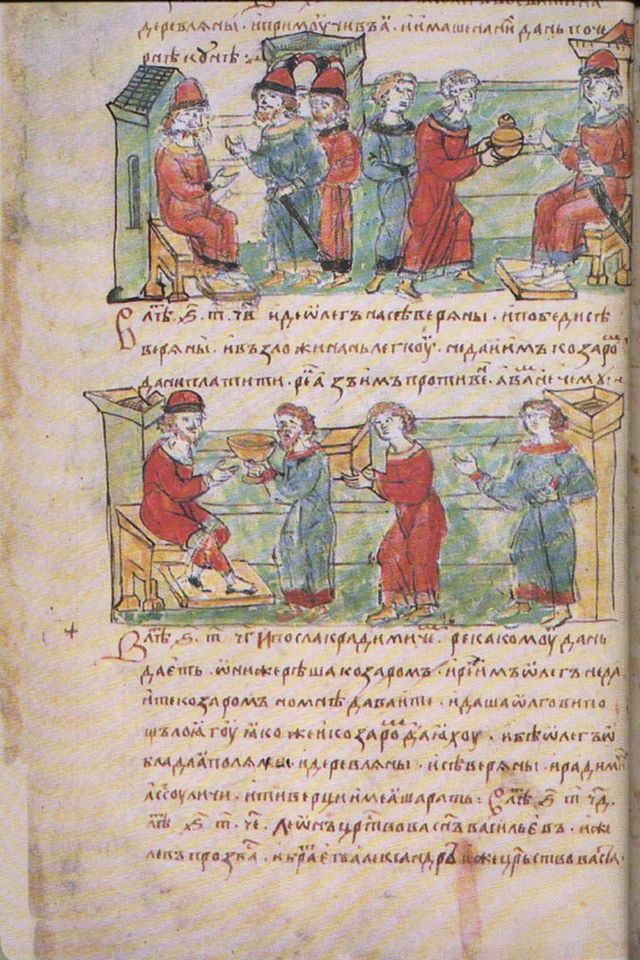 деревляны · и примоучивъ ꙗ · и имаше на ни дань по че
рнѣ кунѣ :
В лѣт ҂ѕ҃ · т҃ · ч҃в иде ѡлегъ на сѣверѧны · и победи сѣ
верѧны · и възложи на нь легкоу · не да имъ козаро
дани платити · ре аз ъ имъ противе · а ва не чему ·
В лѣт ҂ѕ҃ · т҃ · ч҃г и посла к радимиче · река комоу дань
даеть · ѡни же рѣша козаром · и ре имъ ѡлегъ не да
ите козаромъ но мнѣ даваите · и даша ѡлгови по
щълѧгоу ꙗко же и козаро даꙗхоу · и бѣ ѡлегъ ѡ
блада полѧны · и деревлѧны · и сѣверѧны · и радими
а с соуличи · и тиверци имеꙗше рать : В лѣт ҂ѕ҃ · т҃ · ч҃д
лѣт ҂ѕ҃ · т҃ · ч҃е · леѡнъ цртвова снъ васильевъ · иже
левъ прозва · и бра его александръ иже црьствова